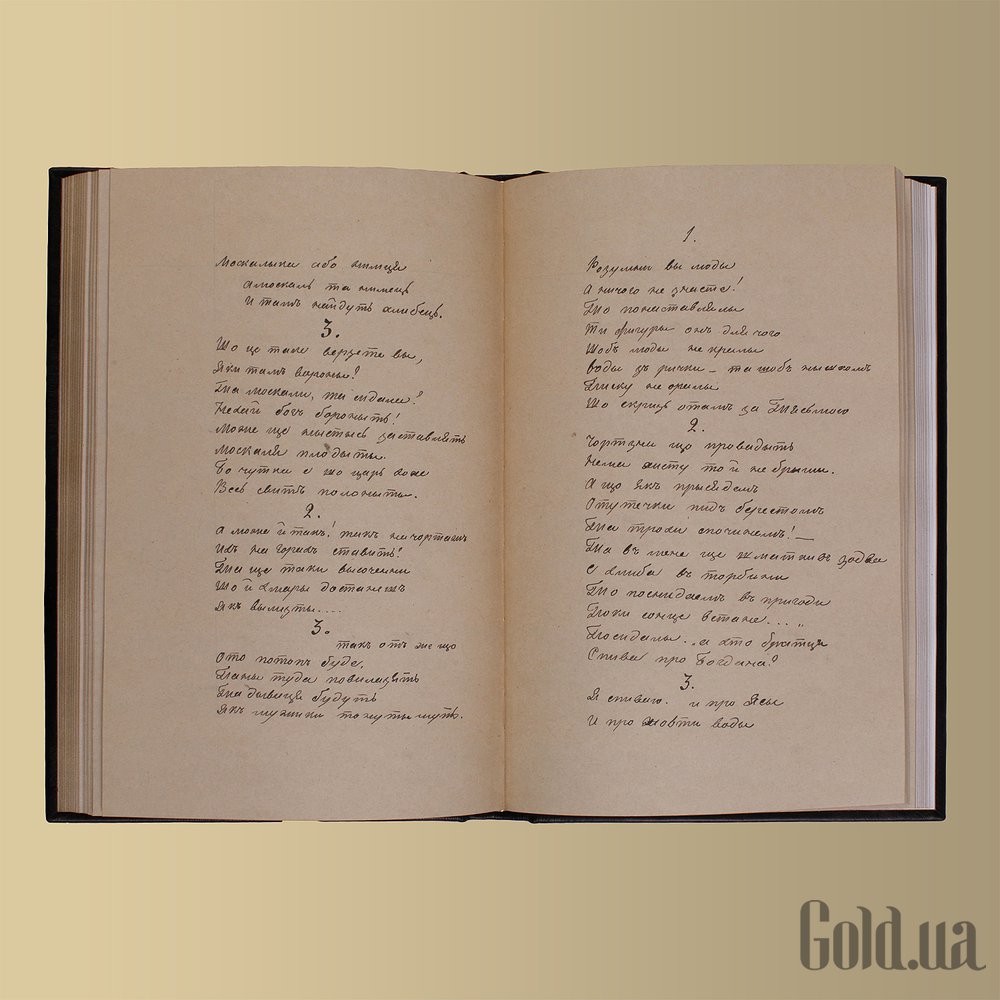 Москалыки або нимця
амоскаль та нимець
И тамъ найдутъ хлибець.
3.
Шо це таке верзете вы,
Яки тамъ вороны?
Та москали, та й дали?
Нехай богъ боронытъ!
Може ще ныстысь заставлять
Москаля плодыты.
Бо чутка е що царь хоче
Весь свитъ полоныты.
2.
А може й такъ! такъ на чортажъ
Ихъ на горахъ ставить!
Та ще таки высоченни
Шо й хмары достанешъ
Якъ вылизты....
3.
такъ отъ же що
Ото потопъ буде,
Паны туда повилазять
Та дывиця будуть
Якъ мужики тонутымуть.
1.
Розумни вы люды
А ничого не знаете!
То понаставлялы
Ти фигуры онъ для чого
Шобъ люды не кралы
Воды зъ рички — та шобъ нышкомъ
Писку не оралы
Шо скризь отамъ за Тясьмою
2.
Чортзна що провадыть
Нема хисту то й не брешы.
А що якъ прысядемъ
Отутечки пидъ берестомъ
Та трохи спочинемъ! —
Та въ мене ще шматкивъ зодва
Є хлиба въ торбини
То поснидаемъ въ пригоди
Поки сонце встане....
Посидалы.. а хто братця
Спива про Богдана?
3.
Я спиваю. и про Ясы
И про Жовти воды
Gold.ua